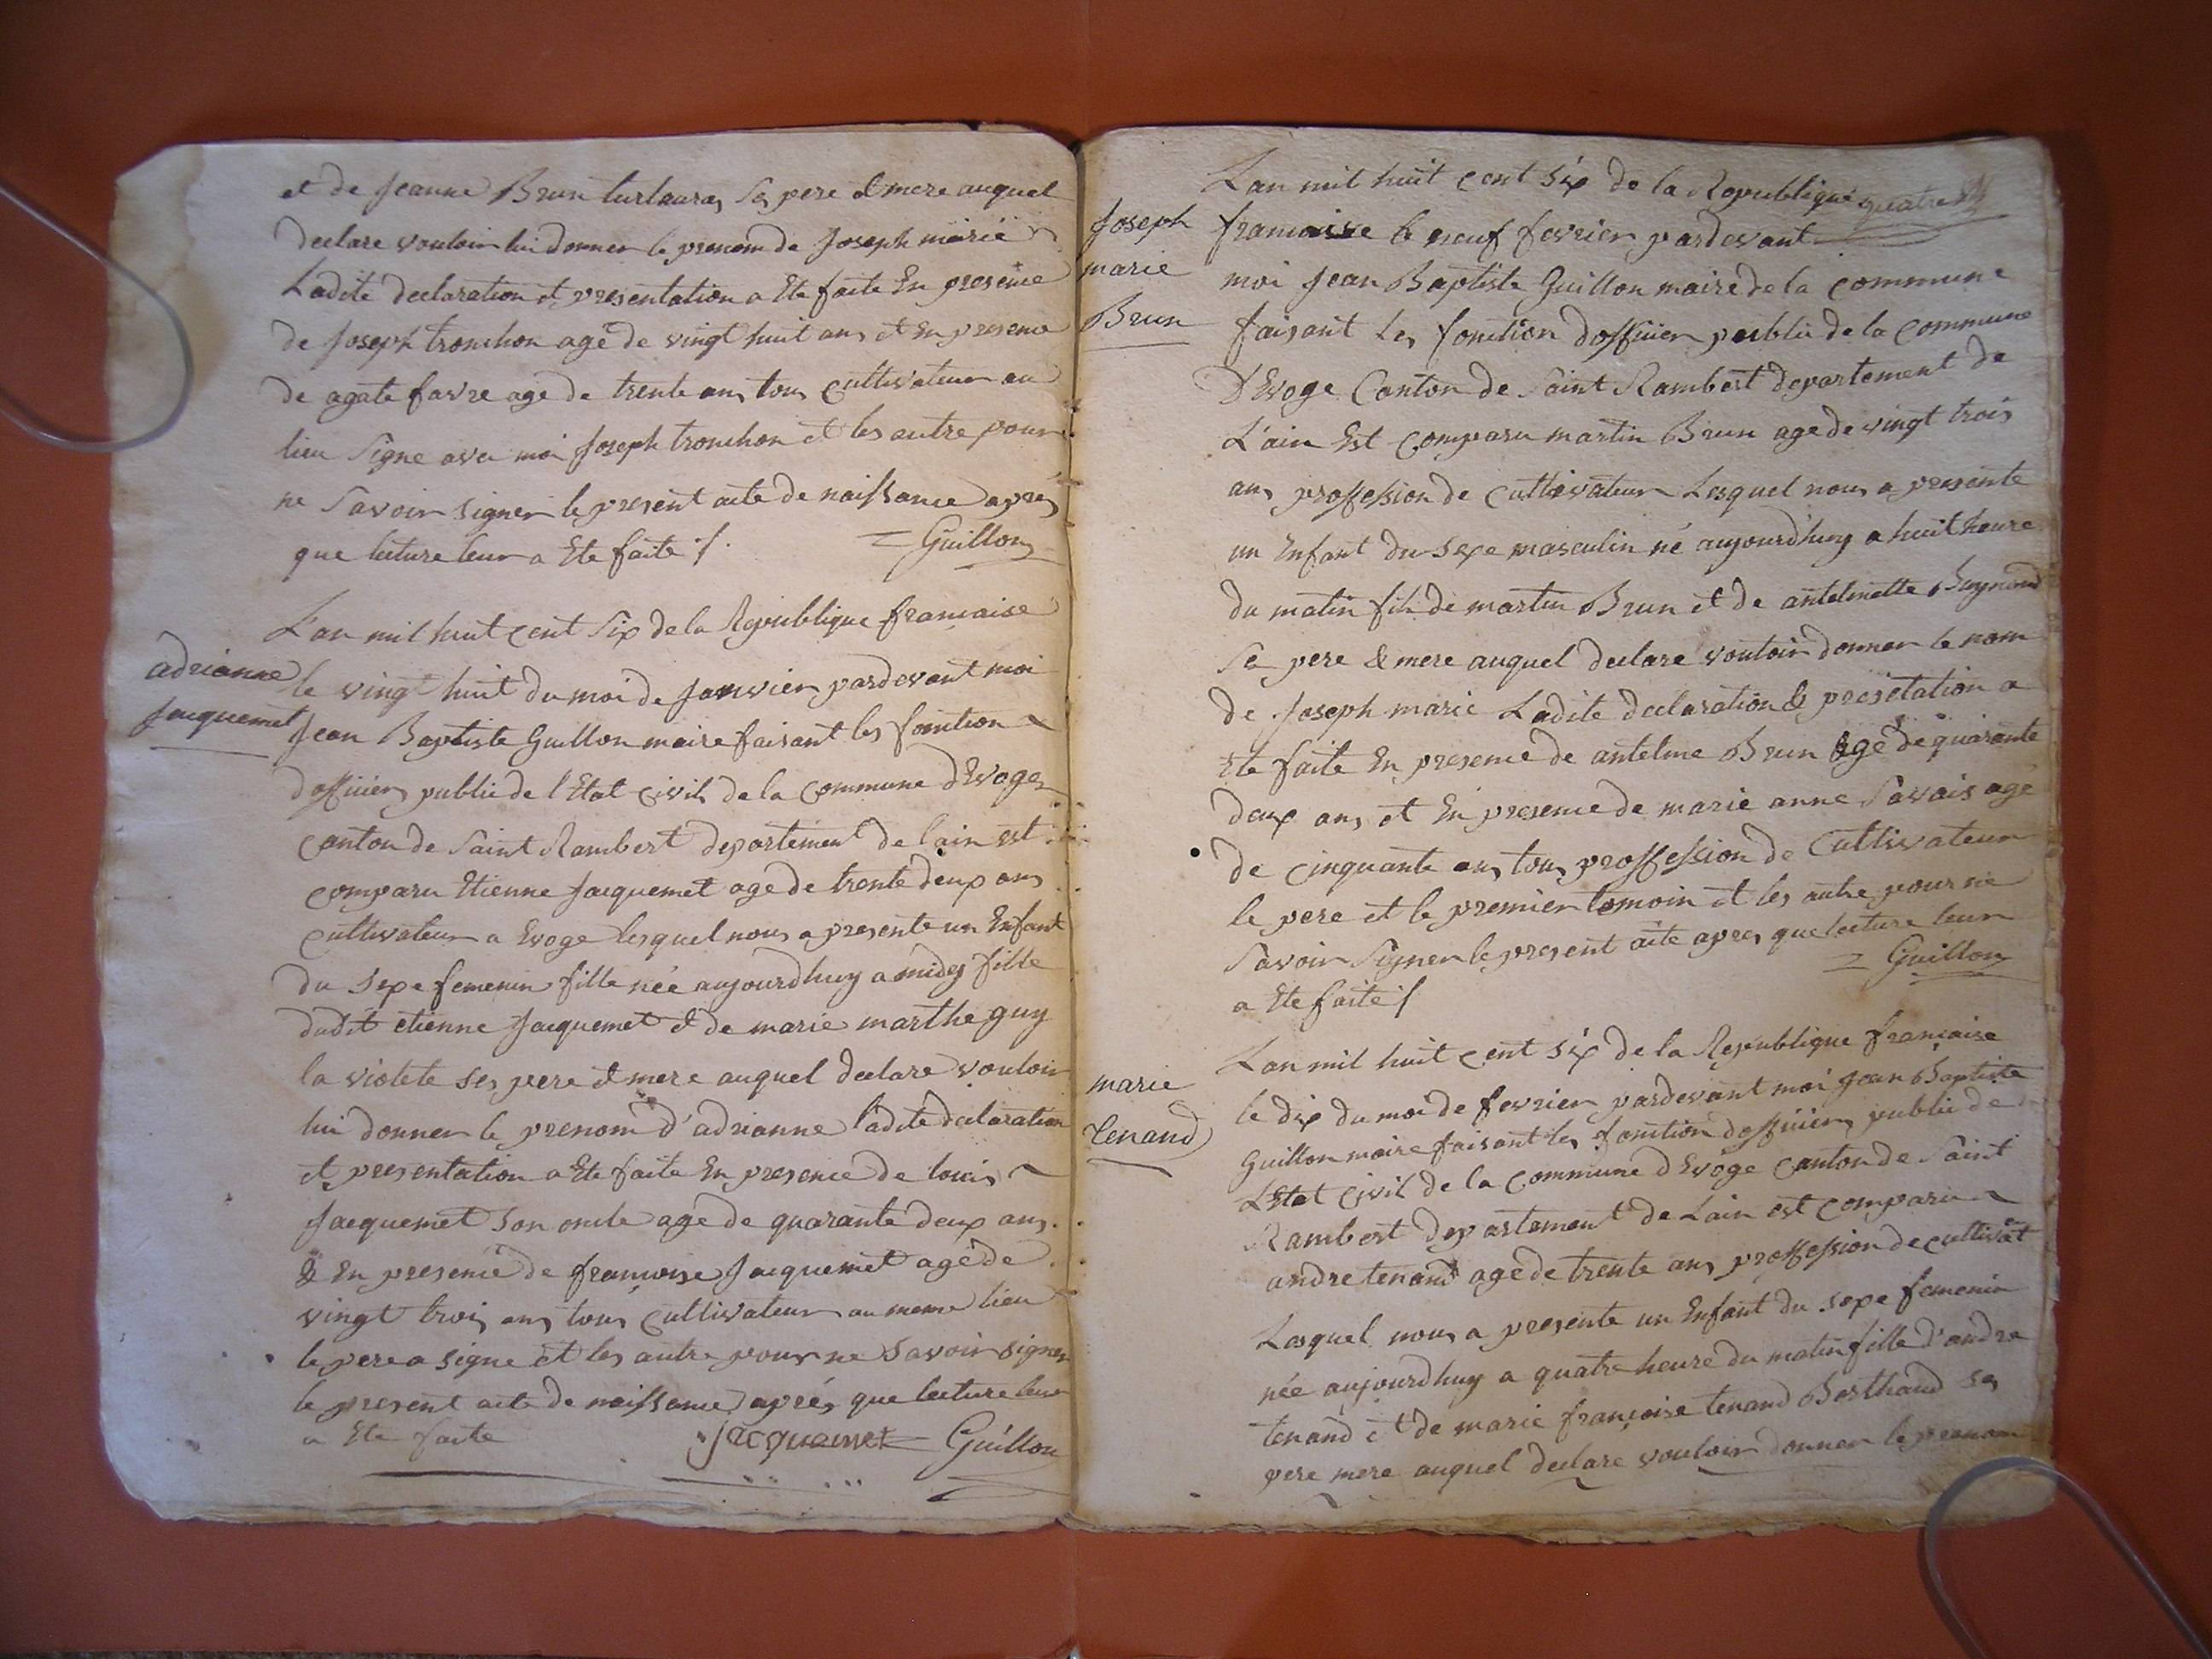 et de Jeanne Brun turlauras Ses pere et mere auquel
declare vouloir lui donner le prenom de Joseph marie
Ladite declaration et presentation a Ete faite En presence
de Joseph tronchon age de vingt huit ans et En presence
de agate favre age de trente ans tous cultivateur au
lieu Signe avec moi Joseph tronchon et les autre pour
ne Savoir signer le present acte de naissance apres
que lecture leur a Ete faite /.
Guillon
adrianne
Jacquemet
L'an mil huit cent Six de la Republique francaise
le vingt huit du moi de Janvier pardevant moi
Jean Baptiste Guillon maire faisant les fonction
dofficier public de l'Etat Civil de la Commune dEvoges
Canton de Saint Rambert departement de lain est
comparu Etienne Jacquemet age de trente deux ans
Cultivateur a Evoge lesquel nous a presente un Enfant
du Sexe femenin fille née aujourdhuy a midy fille
dudit etienne Jacquemet et de marie marthe guy
la violete ses pere et mere auquel declare vouloir
lui donner le prenom d'adrianne ladite declaration
et presentation a Ete faite En presence de louis
Jacquemet Son oncle age de quarante deux ans
& En presence de francoise Jacquemet age de
vingt trois ans tous cultivateur au meme lieu
le pere a signe et les autre pour ne Savoir signer
le present acte de naissance aprés que lecture leur
a Ete faite
Jacquemet Guillon
quatre
Joseph
marie
Brun
Lan mil huit cent six de la Republique
francaise le neuf fevrier pardevant
moi Jean Baptiste Guillon maire de la commune
faisant Les fonction dofficier public de la commune
d'Evoge Canton de Saint Rambert departement de
L'ain Est comparu martin Brun age de vingt trois
ans proffession de Cultivateur Lesquel nous a presente
un Enfant du Sexe masculin né aujourd'huy a huit heure
du matin fils de martin Brun et de antelmette
Se pere & mere auquel declare vouloir donner le nom
de Joseph marie Ladite declaration & presetation a
Ete faite En presence de antelme Brun age de quarante
deux ans et En presence de marie anne Savais age
de cinquante ans tous proffession de Cultivateur
le pere et le premier temoin et les autre pour ne
Savoir Signer le present acte apres que lecture leur
a Ete faite /
Guillon
marie
tenand
Lan mil huit cent six de la Republique française
le dix du moi de fevrier pardevant moi Jean Baptiste
Guillon maire faisant les fonction dofficier public de
LEtat Civil de la Commune dEvoge Canton de Saint
Rambert departement de Lain est comparu
andre tenand age de trente ans proffession de cultivat
Lesquel nous a presente un Enfant du sexe femenin
née aujourdhuy a quatre heure du matin fille d'andre
tenand et de marie françoise tenand Berthand Ses
pere mere auquel declare vouloir donner le prenom